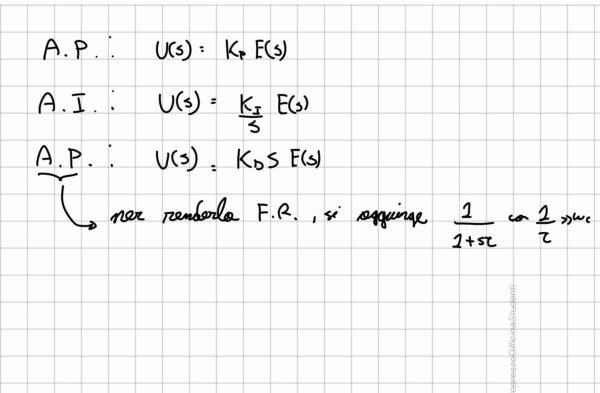 A.P.: U(s) = Kp E(s)
A.I.: U(s) = KI/s E(s)
A.P.: U(s) = KD s E(s)
per renderla F.R., si aggiunge 1/(1+sτ) con 1/τ >> ωc
opressoOfficineStudenti